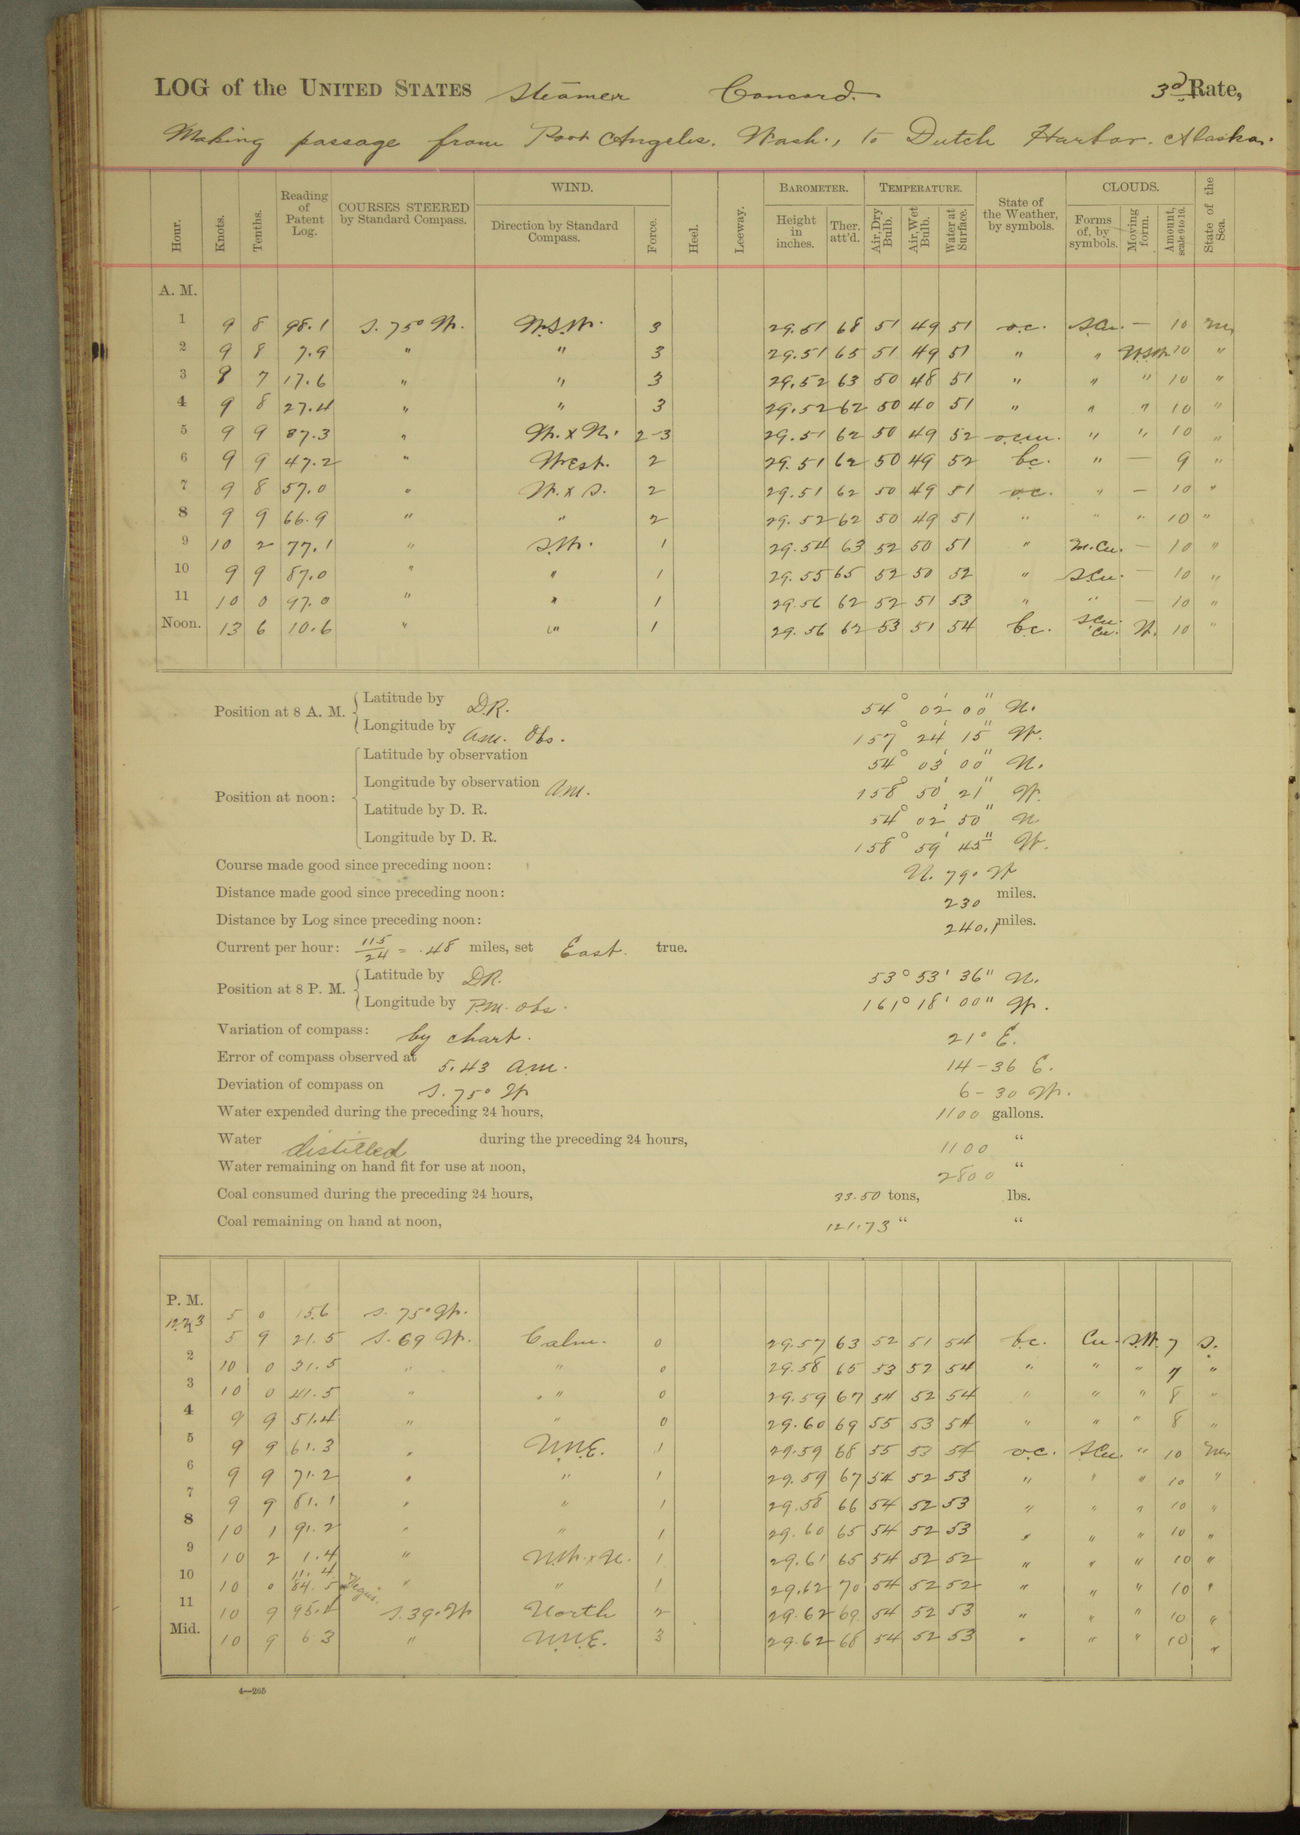 LOG of the UNITED STATES Steamer Concord. 3d Rate,
Making passage from Port Angeles. Wash., to Dutch Harbor. Alaska.
Hour. Knots. Tenths. Reading of Patent Log. COURSES STEERED by Standard Compass. WIND. Direction by Standard Compass. Force. Heel. Leeway. BAROMETER. Height in inches. Ther. att'd. TEMPERATURE. Air, Dry Bulb. Air, Wet Bulb. Water at Surface. State of the Weather, by symbols. CLOUDS. Forms of, by symbols. Moving form. Amount, scale 0 to 10. State of the Sea.
A. M.
1 9 8 98.1 S. 75° W. W.S.W. 3 29.51 68 51 49 51 o.c. S.Cu. — 10 m
2 9 8 7.9 " " 3 29.51 65 51 49 51 " " W.S.W. 10 "
3 9 7 17.6 " " 3 29.52 63 50 48 51 " " " 10 "
4 9 8 27.4 " " 3 29.52 62 50 40 51 " " " 10 "
5 9 9 37.3 " W. x N. 2-3 29.51 62 50 49 52 o.c.m. " " 10 "
6 9 9 47.2 " West. 2 29.51 62 50 49 52 b.c. " — 9 "
7 9 8 57.0 " W. x S. 2 29.51 62 50 49 51 o.c. " — 10 "
8 9 9 66.9 " " 2 29.52 62 50 49 51 " " " 10 "
9 10 2 77.1 " S.W. 1 29.54 63 52 50 51 " m.Cu. — 10 "
10 9 9 87.0 " " 1 29.55 65 52 50 52 " S.Cu. — 10 "
11 10 0 97.0 " " 1 29.56 62 52 51 53 " " — 10 "
Noon. 13 6 10.6 " " 1 29.56 62 53 51 54 b.c. S.Cu. Cu. W. 10 "
Position at 8 A. M. Latitude by D.R. 54° 02' 00" N.
Longitude by a.m. Obs. 157° 24' 15" W.
Position at noon: Latitude by observation 54° 03' 00" N.
Longitude by observation a.m. 158° 50' 21" W.
Latitude by D. R. 54° 02' 50" N
Longitude by D. R. 158° 59' 45" W.
Course made good since preceding noon: N. 79° W
Distance made good since preceding noon: 230 miles.
Distance by Log since preceding noon: 240.1 miles.
Current per hour: 11.5/24 = .48 miles, set East. true.
Position at 8 P. M. Latitude by D.R. 53° 53' 36" N.
Longitude by P.M. obs. 161° 18' 00" W.
Variation of compass: by chart. 21° E.
Error of compass observed at 5.43 a.m. 14-36 E.
Deviation of compass on S. 75° W 6-30 W.
Water expended during the preceding 24 hours, 1100 gallons.
Water distilled during the preceding 24 hours, 1100 "
Water remaining on hand fit for use at noon, 2800 "
Coal consumed during the preceding 24 hours, 33.50 tons, lbs.
Coal remaining on hand at noon, 121.73 " "
P. M.
5 0 15.6 S. 75° W.
1 5 9 21.5 S. 69 W. Calm. 0 29.57 63 52 51 54 b.c. Cu. S.W. 7 S.
2 10 0 31.5 " " 0 29.58 65 53 52 54 " " " 7 "
3 10 0 41.5 " " 0 29.59 67 54 52 54 " " " 8 "
4 9 9 51.4 " " 0 29.60 69 55 53 54 " " " 8 "
5 9 9 61.3 " N.N.E. 1 29.59 68 55 53 54 o.c. S.Cu. " 10 m
6 9 9 71.2 " " 1 29.59 67 54 52 53 " " " 10 "
7 9 9 81.1 " " 1 29.58 66 54 52 53 " " " 10 "
8 10 1 91.2 " " 1 29.60 65 54 52 53 " " " 10 "
9 10 2 1.4 " N.W. x N. 1 29.61 65 54 52 52 " " " 10 "
10 10 0 11.4 84.5 " " 1 29.62 70 54 52 52 " " " 10 "
11 10 9 95.4 S. 39° W North 2 29.62 69 54 52 53 " " " 10 "
Mid. 10 9 6.3 " N.N.E. 3 29.62 68 54 52 53 " " " 10 "
4—265